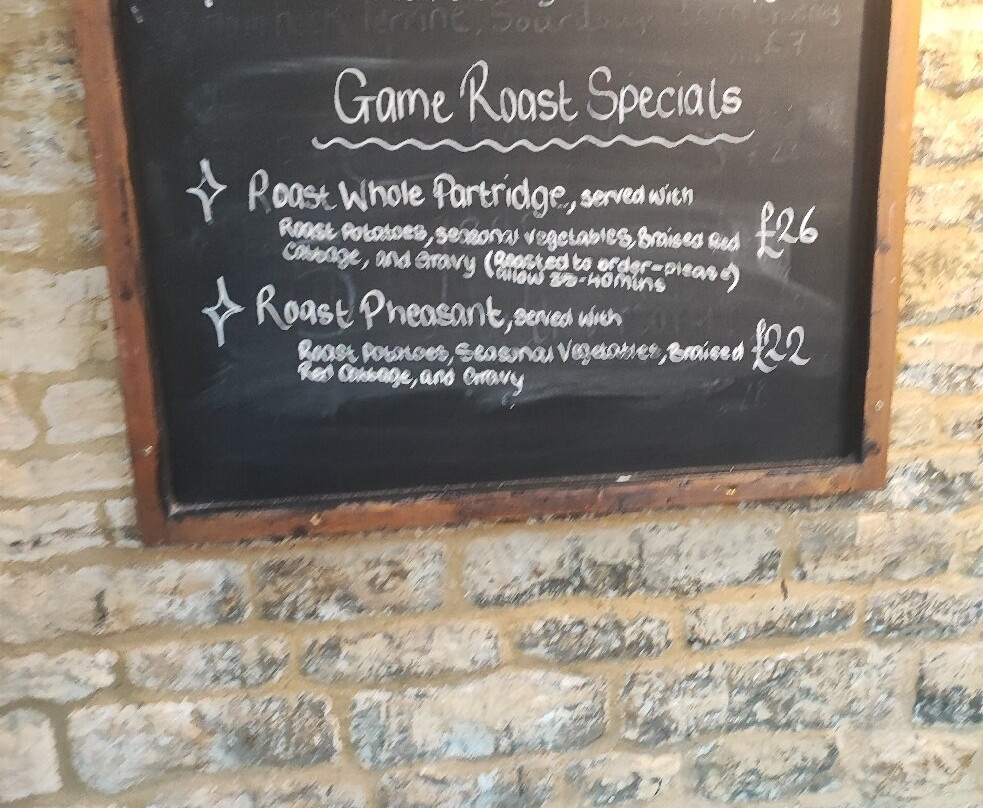 Terrine, Sourdough
£7
Game Roast Specials
Roast Whole Partridge, served with
Roast Potatoes, seasonal vegetables, Braised Red £26
Cabbage, and Gravy (Roasted to order - please
allow 35-40mins)
Roast Pheasant, served with
Roast Potatoes, Seasonal Vegetables, Braised £22
Red Cabbage, and Gravy